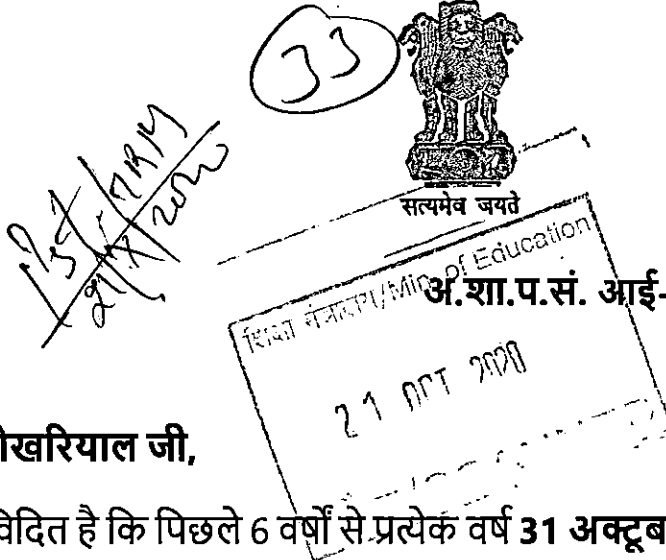 33
सत्यमेव जयते
शिक्षा मंत्रालय/Min. of Education
अ.शा.प.सं. आई-
21 OCT 2020
ोखरियाल जी,
विदित है कि पिछले 6 वर्षों से प्रत्येक वर्ष 31 अक्टूब